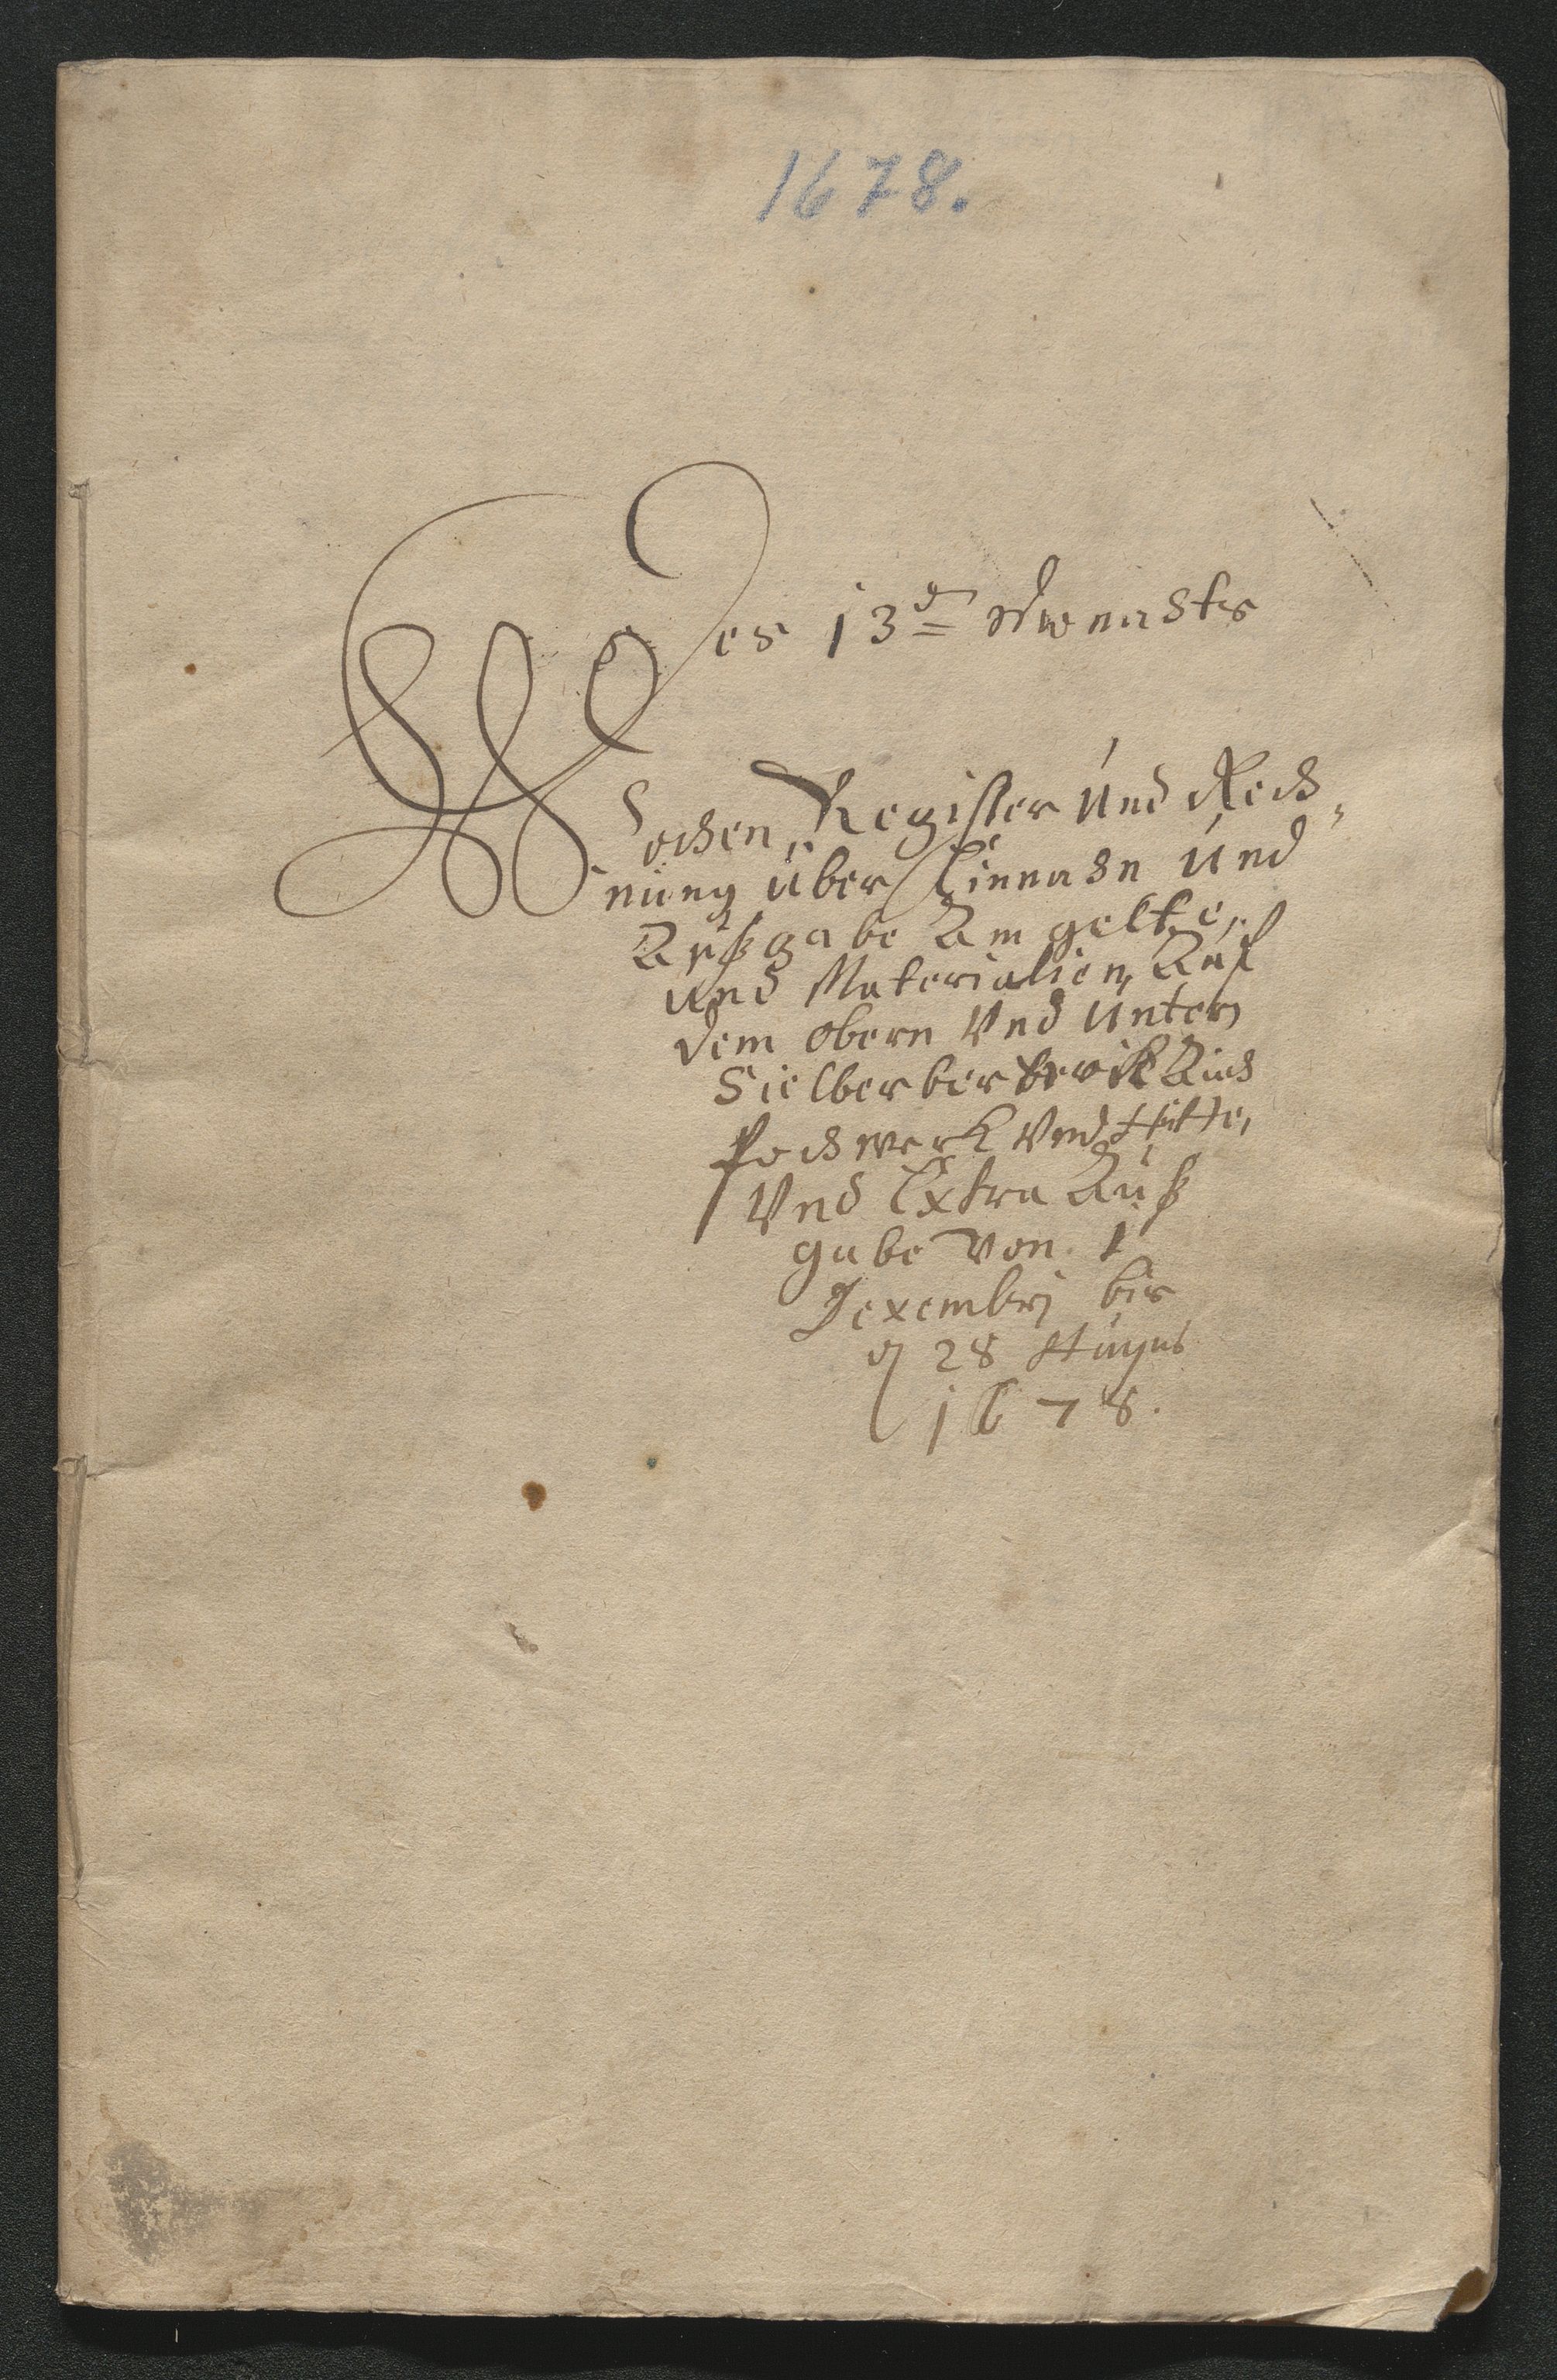 1678.
Des 13den Monahts
Wochen Register Und Rech„
nung über Einnahm Und
Außgabe Am gelte,
Und Materialien, Auf
dem obern Vnd Untern
Sielberberkwerk Auch
Pochwerk Vnd Hütte,
Vnd Extra Auß
gabe von 1
Dexembrj bis
d 28 Hujus
1678.